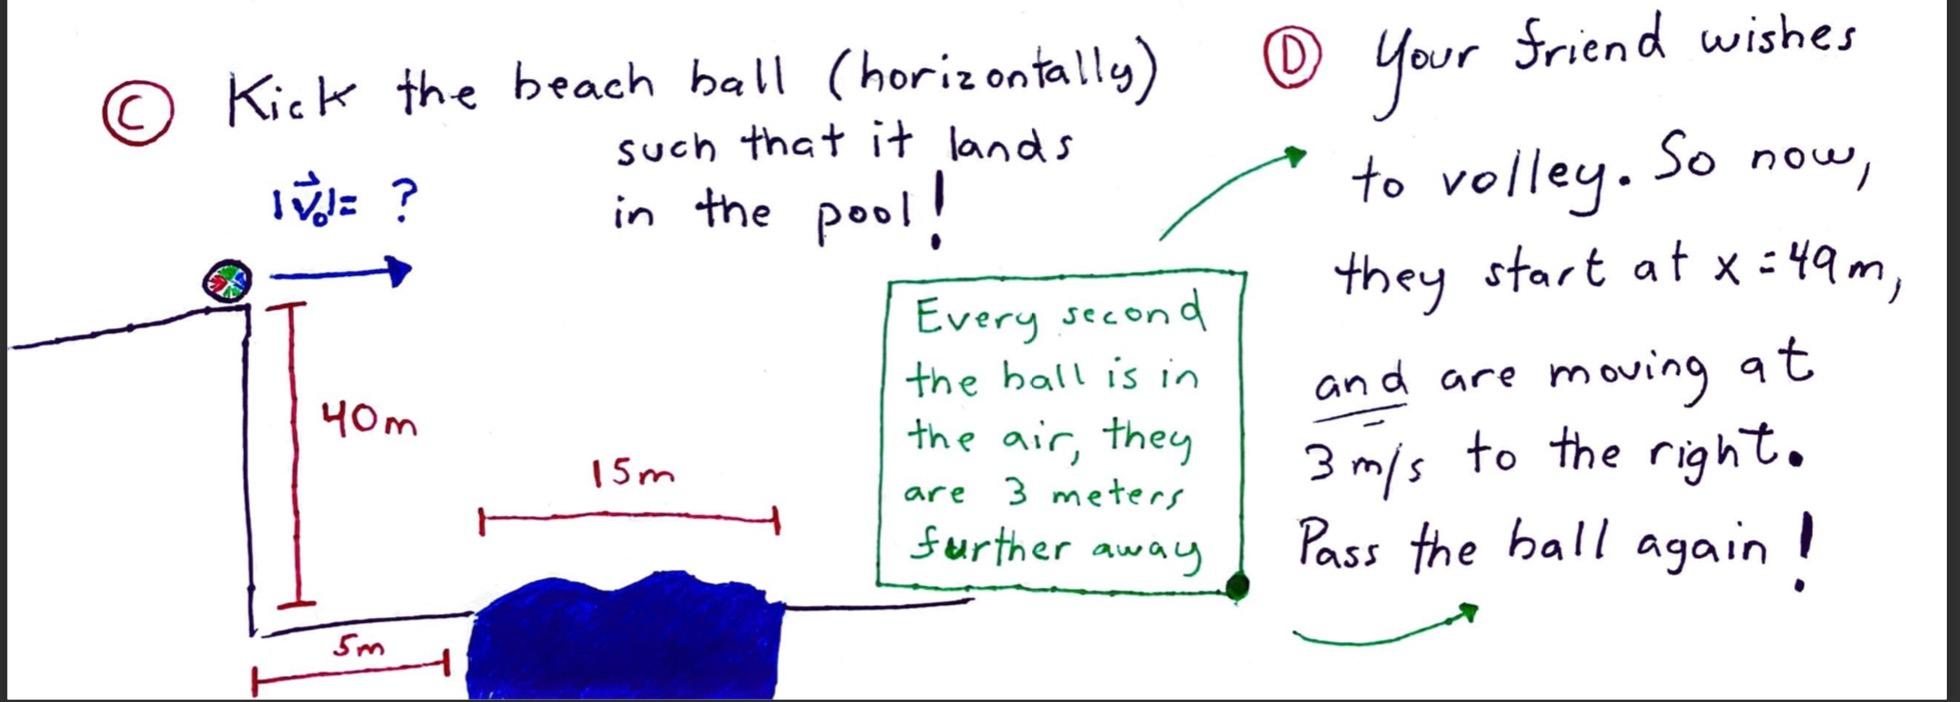 C Kick the beach ball (horizontally)
such that it lands
in the pool!
|v₀|= ?
40m
15m
5m
Every second
the ball is in
the air, they
are 3 meters
further away
D Your friend wishes
to volley. So now,
they start at x=49m,
and are moving at
3 m/s to the right.
Pass the ball again!